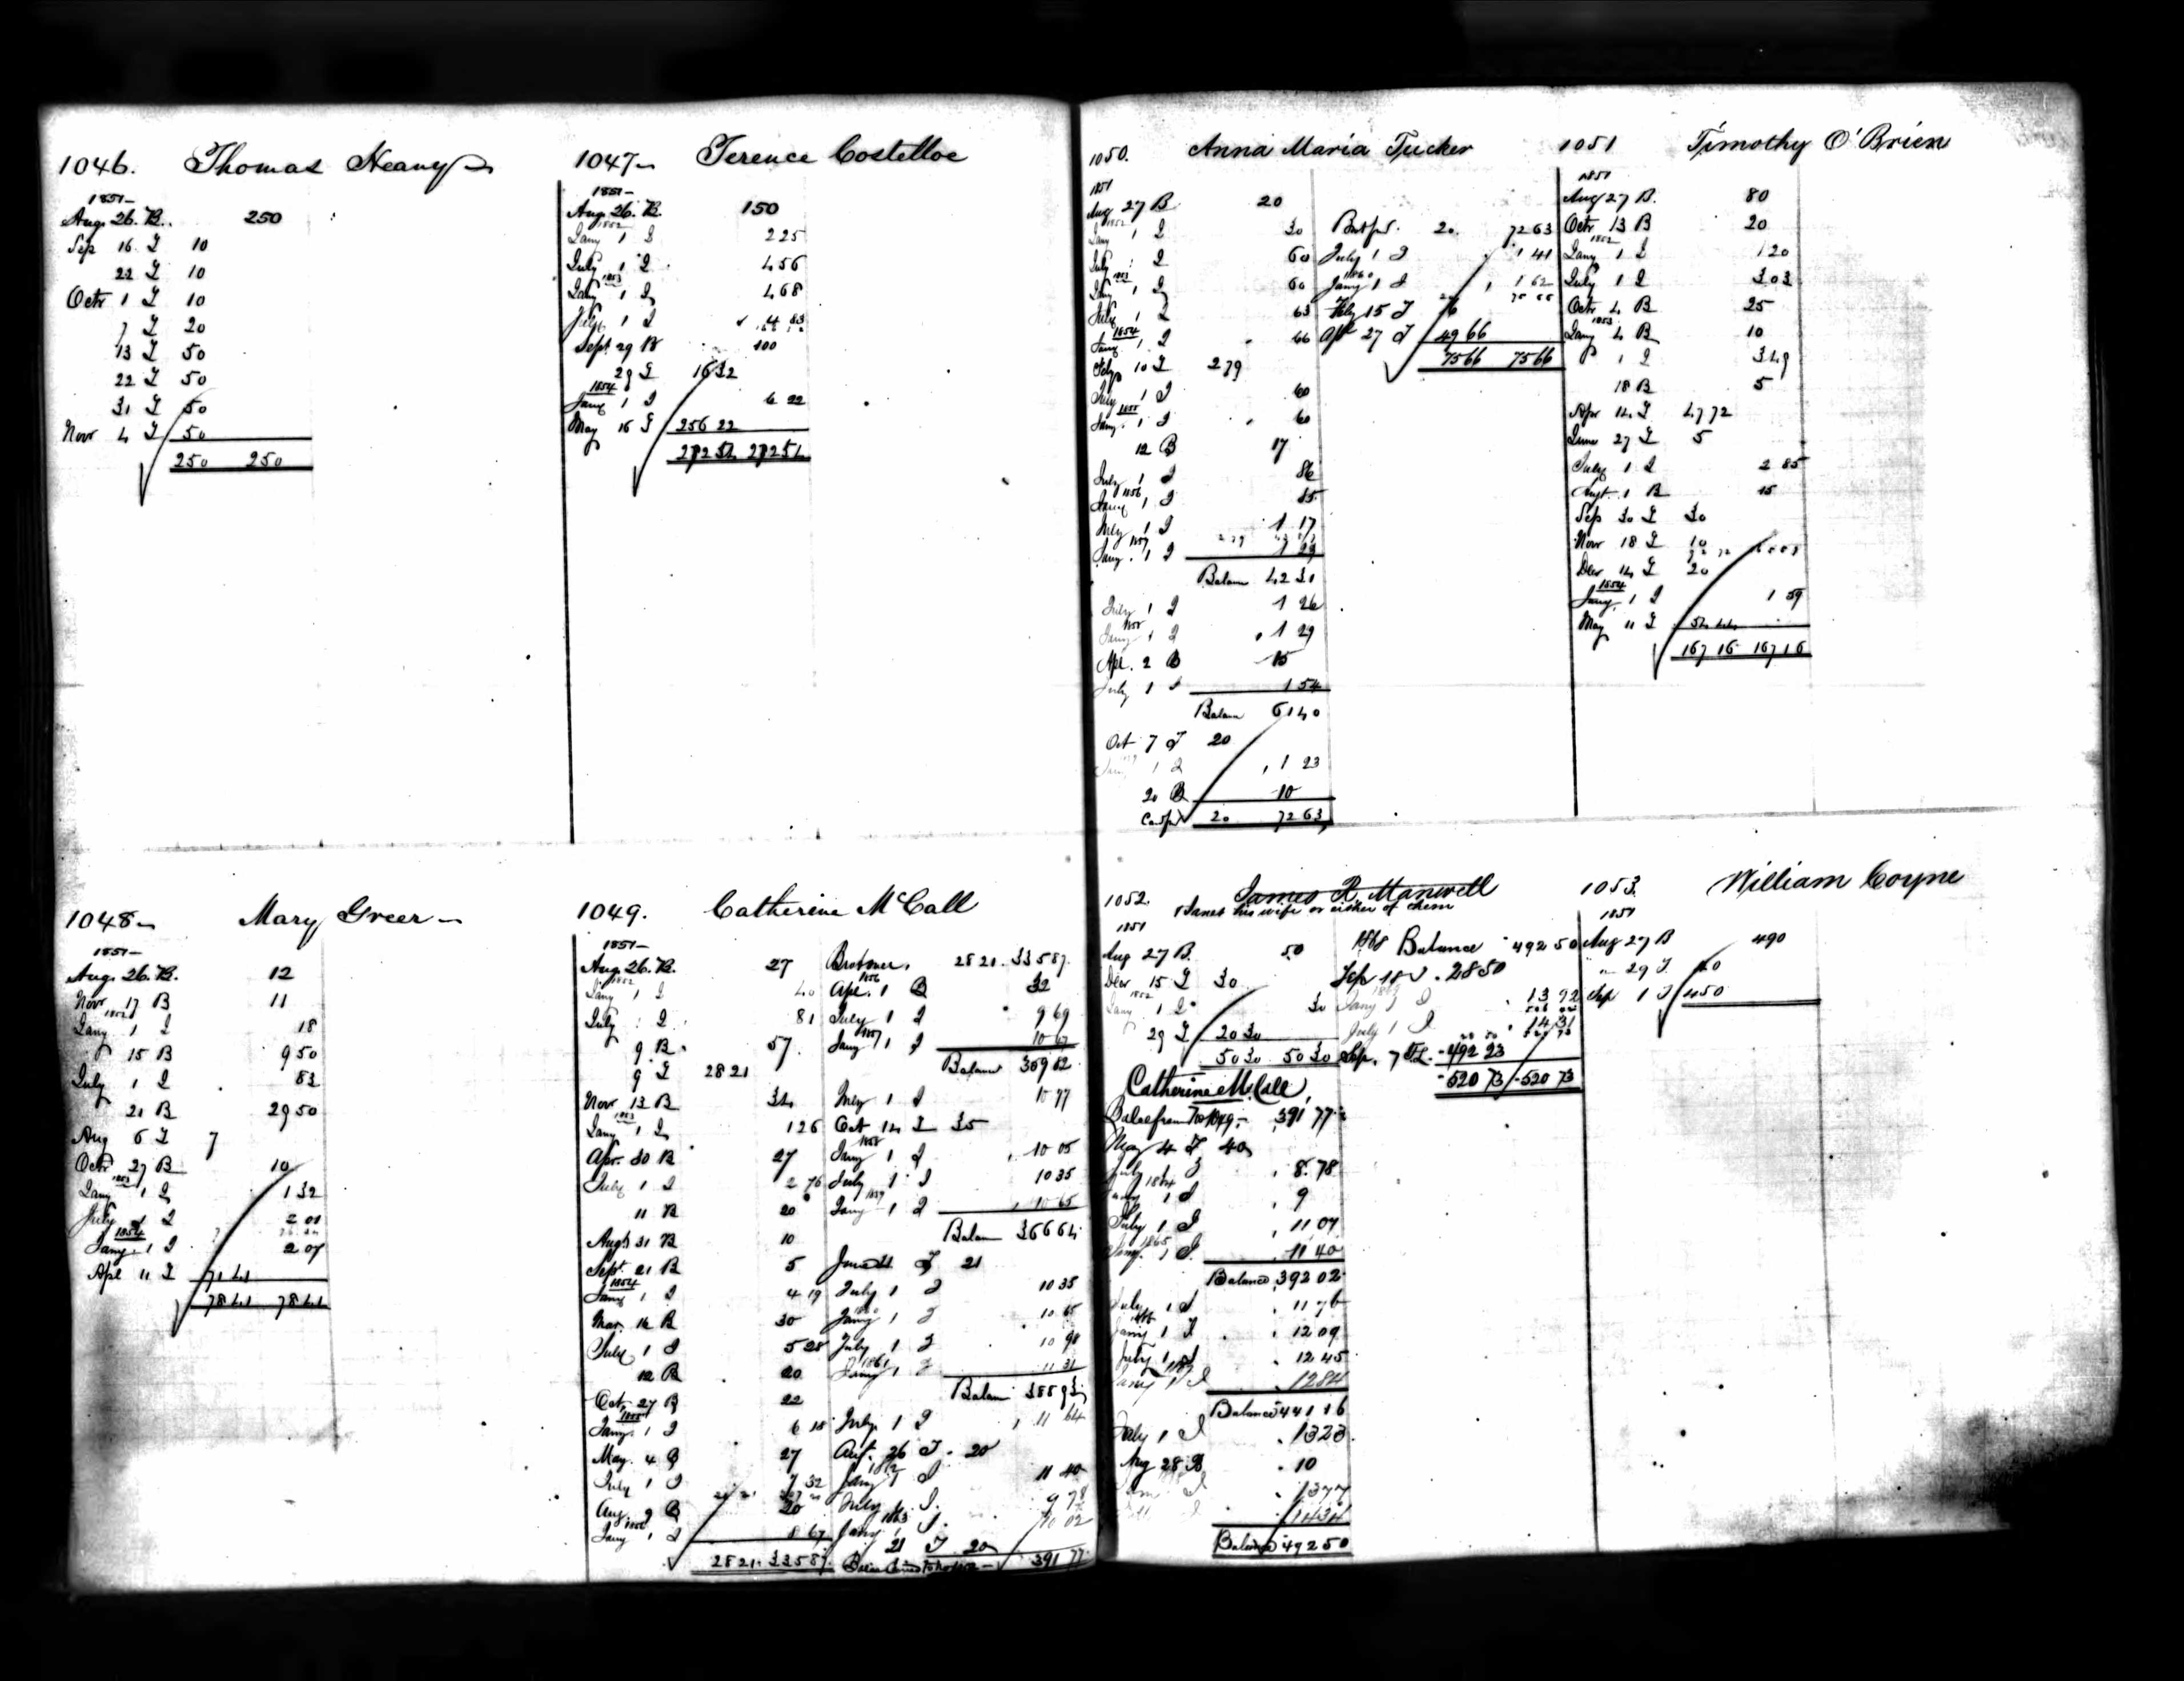 1046. Thomas Heany
1851-
Aug. 26. B. 250
Sep 16 T 10
22 T 10
Octr 1 T 10
7 T 20
13 T 50
22 T 50
31 T 50
Novr 4 T 50
250 250
1047- Terence Costelloe
1851-
Aug. 26. B. 150
1852
Jany 1 I 2 25
July 1 I 4 56
1853
Jany 1 I 4 68
July 1 I 4 83
Sept 29 B 100
29 T 16 32
1854
Jany 1 I 6 22
May 16 T 256 22
272 54 272 54
1048- Mary Greer-
1851-
Aug. 26. B. 12
Novr 17 B 11
1852
Jany 1 I 18
15 B 9 50
July 1 I 83
21 B 29 50
Aug 6 T 7
Octr 27 B 10
1853
Jany 1 I 1 32
July 1 I 2 01
1854
Jany. 1 I 2 07
Apl 11 T 71 41
78 41 78 41
1049. Catherine McCall
1851-
Aug. 26. B. 27
1852
Jany 1 I 40
July 1 I 81
9 B 57
9 T 28 21
Novr 13 B 34
1853
Jany 1 I 1 26
Apr. 30 B 27
July 1 I 2 76
11 B 20
Augt 31 B 10
Sept. 21 B 5
1854
Jany 1 I 4 19
Mar. 16 B 30
July 1 I 5 28
12 B 20
Oct. 27 B 22
1855
Jany. 1 I 6 18
May. 4 B 27
July 1 I 7 32
Aug. 9 B 20
1856
Jany 1 I 8 67
28 21. 335 87.
28 21. 335 87.
1856
Apl. 1 B 32
July 1 I 9 69
1857
Jany 1 I 10 67
Balance 359 82
July 1 I 10 77
Oct 14 T 35
1858
Jany 1 I 10 05
July 1 I 10 35
1859
Jany 1 I 10 65
Balan 366 64
June 21 T 21
July 1 I 10 35
1860
Jany 1 I 10 65
July 1 I 10 98
1861
Jany 1 I 11 31
Balan 388 93
July 1 I 11 64
Aut. 26 T. 20
1862
Jany 1 I 11 40
July 1 I. 9 78
1863
Jany 1 I. 10 02
21 T 20
391 77
1050. Anna Maria Tucker
1851
Aug 27 B 20
1852
Jany 1 I 30
July 1 I 60
1853
Jany 1 I 60
July 1 I 63
1854
Jany 1 I 66
Feby 10 T 2 79
July 1 I 60
1855
Jany. 1 I 60
12 B 17
July 1 I 86
1856
Jany 1 I 85
July 1 I 1 17
1857
Jany. 1 I 1 29
Balan 42 31
July 1 I 1 26
1858
Jany 1 I 1 29
Apl. 2 B 15
July 1 I 1 54
Balan 61 40
Oct 7 T 20
1859
Jany 1 I 1 23
20 B 10
20 72 63
20. 72 63
July 1 I 1 41
1860
Jany 1 I 1 62
Feby 15 T 6
Apl 27 T 49 66
75 66 75 66
1051 Timothy O'Brien
1851
Aug 27 B. 80
Octr 13 B 20
1852
Jany 1 I 1 20
July 1 I 3 03
Octr 4 B 25
1853
Jany 4 B 10
1 I 3 49
18 B 5
Apr 14 T 47 72
June 27 T 5
July 1 I 2 85
Augt. 1 B 15
Sep 30 T 30
Novr 18 T 10
Decr 14 T 20
1854
Jany, 1 I 1 59
May 11 T 54 44
167 16 167 16
1052. James R. Manwell
& Janet his wife or either of them
1851
Aug 27 B. 50
Decr 15 T 30
1852
Jany 1 I 30
29 T 20 30
50 30 50 30
Catherine McCall,
391 77
May 4 T 40
July 1 I 8. 78
1864
Jany 1 I 9
July 1 I 11 07
1865
Jany. 1 I. 11 40
Balance 392 02
July 1 I 11 76
1866
Jany 1 I 12 09
July 1 I 12 45
1867
Jany 1 I 12 84
Balance 441 16
July 1 I 13 23.
Aug 28 B 10
Jany I 13 77
14 34
Balance 492 50
1868 Balance 492 50
Sep 18 T. 28 50
1869
Jany 1 I 13 92
July 1 I 14 31
Sep. 7 T. 492 23
520 73 520 73
1053. William Coyne
1851
Aug 27 B 490
" 29 T. 40
Sep 1 T 450